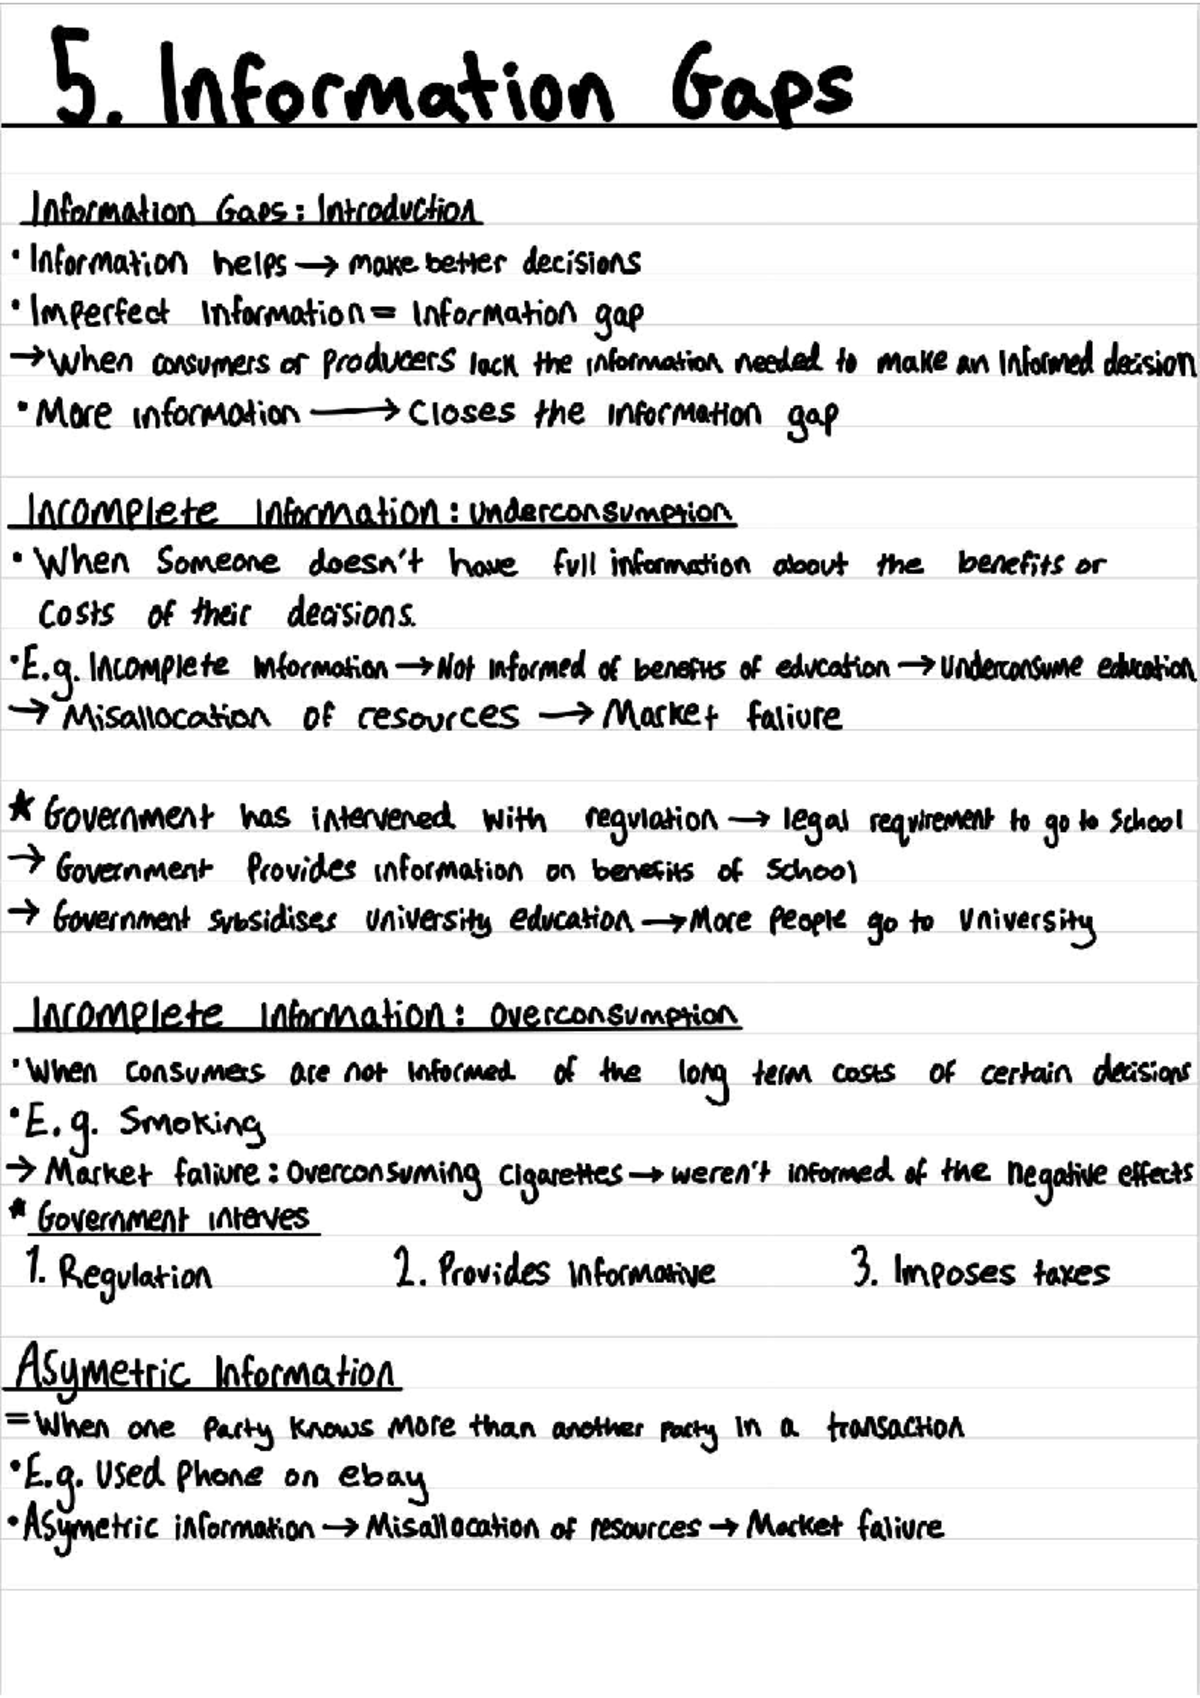 5. Information Gaps
Information Gaps: Introduction
• Information helps → make better decisions
• Imperfect Information = Information gap
→ When consumers or Producers lack the information needed to make an Informed decision
• More information → Closes the information gap
Incomplete Information: Underconsumption
• When Someone doesn't have full information about the benefits or
Costs of their decisions.
• E.g. Incomplete Information → Not Informed of benefits of education → Underconsume education
→ Misallocation of resources → Market faliure
★ Government has intervened with regulation → legal requirement to go to School
→ Government Provides information on benefits of School
→ Government subsidises University education → More People go to University
Incomplete Information: Overconsumption
• When Consumers are not Informed of the long term costs of certain decisions
• E.g. Smoking
→ Market faliure: Overconsuming Cigarettes → weren't informed of the negative effects
* Government interves
1. Regulation 2. Provides Informative 3. Imposes taxes
Asymetric Information
= When one Party knows More than another party in a transaction
• E.g. Used Phone on ebay
• Asymetric information → Misallocation of resources → Market faliure